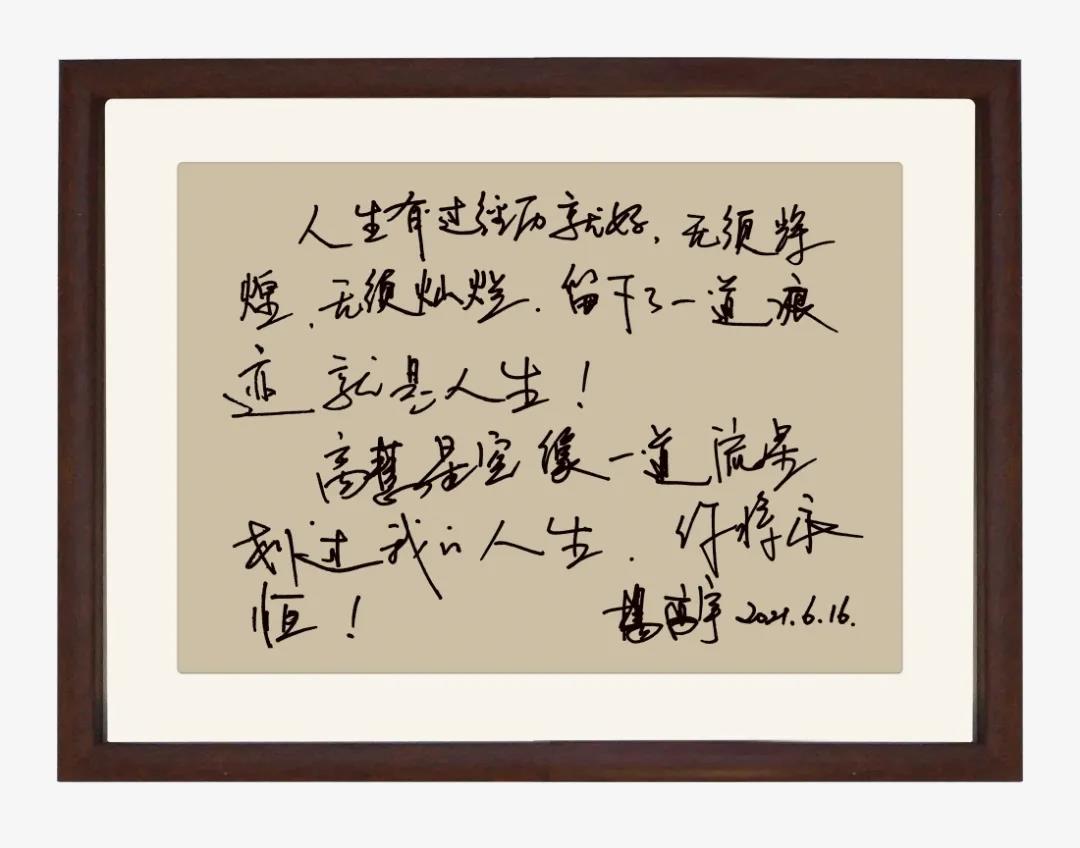 人生有过经历就好，无须辉
煌，无须灿烂．留下了一道痕
迹 就是人生！
高慧星空像一道流
划过我的人生．你将永
恒！
楊 宇 2021.6.16.